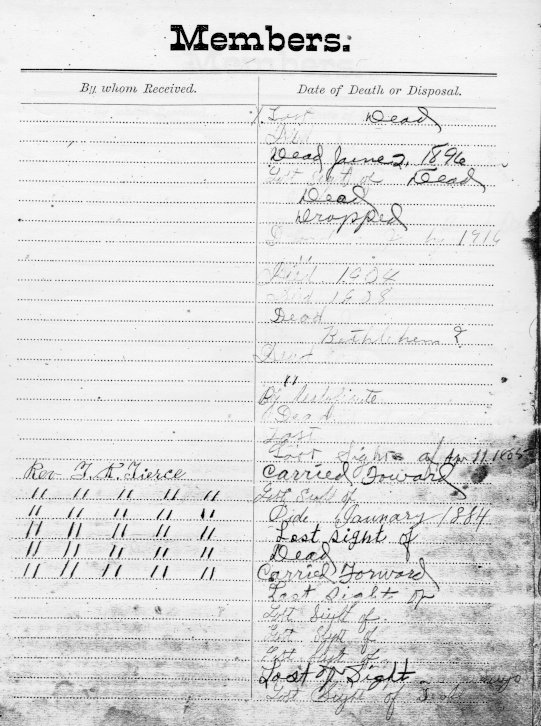 Members.
By whom Received. Date of Death or Disposal.
Lost Dead
Died
Dead June 2, 1896
Lost Sight of Dead
Dead
Dropped
1916
"
Died 1904
Died 1928
Dead
Bethlehem
"
By Certificate
Dead
Lost
Lost Sight of Apr 11 1905
Rev. Pierce Carried Foward
" " " " " Lost Sight of
" " " " " January 1884
" " " " " Lost sight of
" " " " " Dead
" " " " " Carried Forward
Lost sight of
Lost Sight of
Lost Sight of
Lost Sight of
Lost of Sight
Lost Sight of